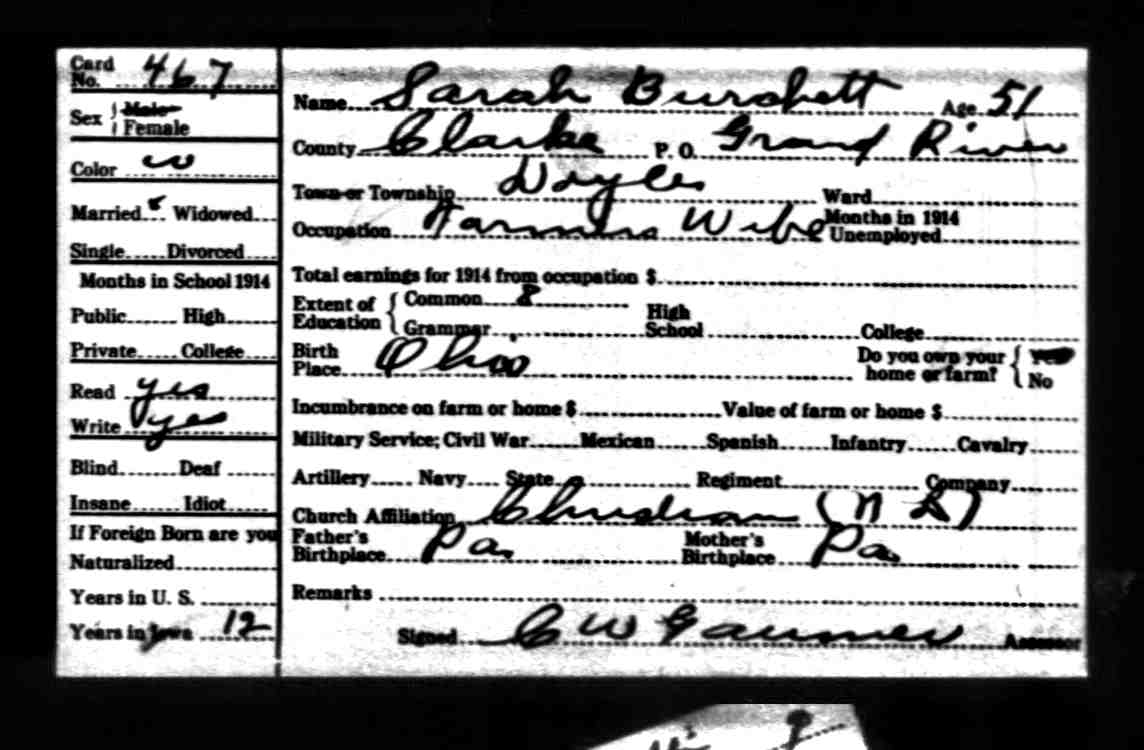 Card No. 467
Sex { Male Female
Color w
Married Widowed
Single Divorced
Months in School 1914
Public High
Private College
Read yes
Write yes
Blind Deaf
Insane Idiot
If Foreign Born are you
Naturalized
Years in U. S.
Years in Iowa 12
Name Sarah Burchett Age 51
County Clarke P. O. Grand River
Town or Township Doyle Ward
Occupation Farmers Wife Months in 1914 Unemployed
Total earnings for 1914 from occupation $
Extent of Education { Common 8 High School
Grammar College
Birth Place Ohio Do you own your home or farm? { Yes No
Incumbrance on farm or home $ Value of farm or home $
Military Service; Civil War Mexican Spanish Infantry Cavalry
Artillery Navy State Regiment Company
Church Affiliation Christian (N D)
Father's Birthplace Pa. Mother's Birthplace Pa.
Remarks
Signed C W Gaumer Assessor